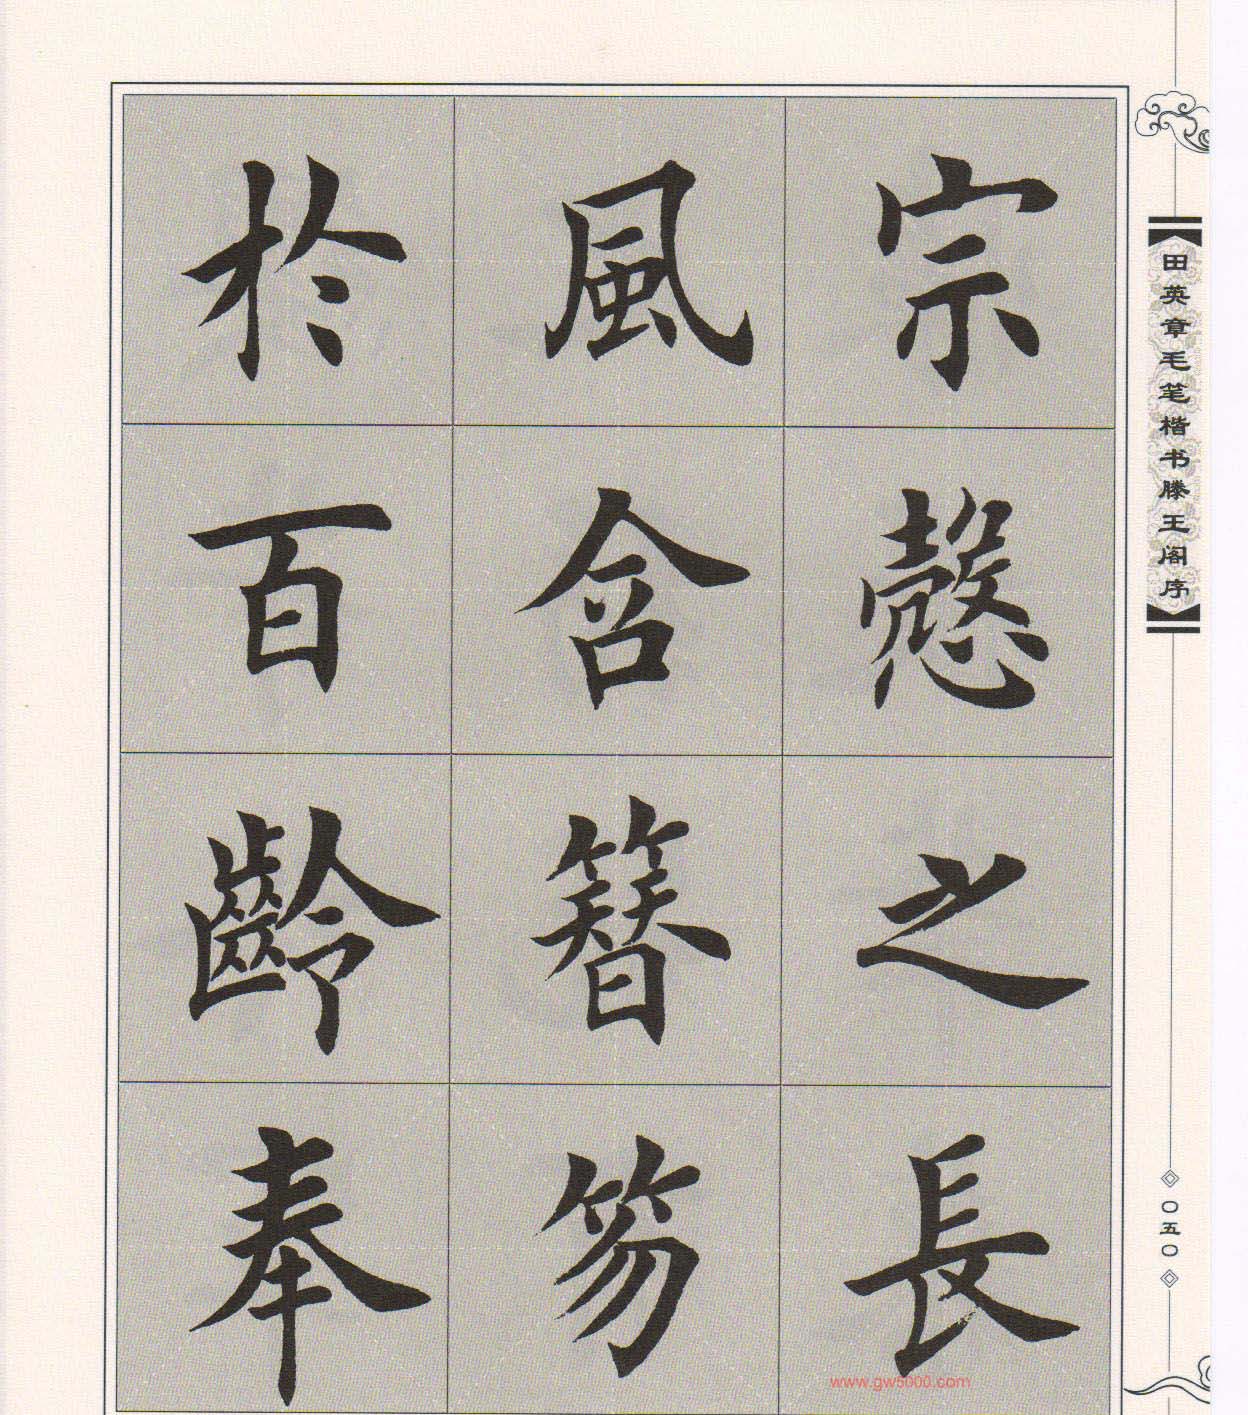 宗慤之長
風舍簪笏
於百齡奉
田英章毛笔楷书滕王阁序
〇五〇
www.gw5000.com